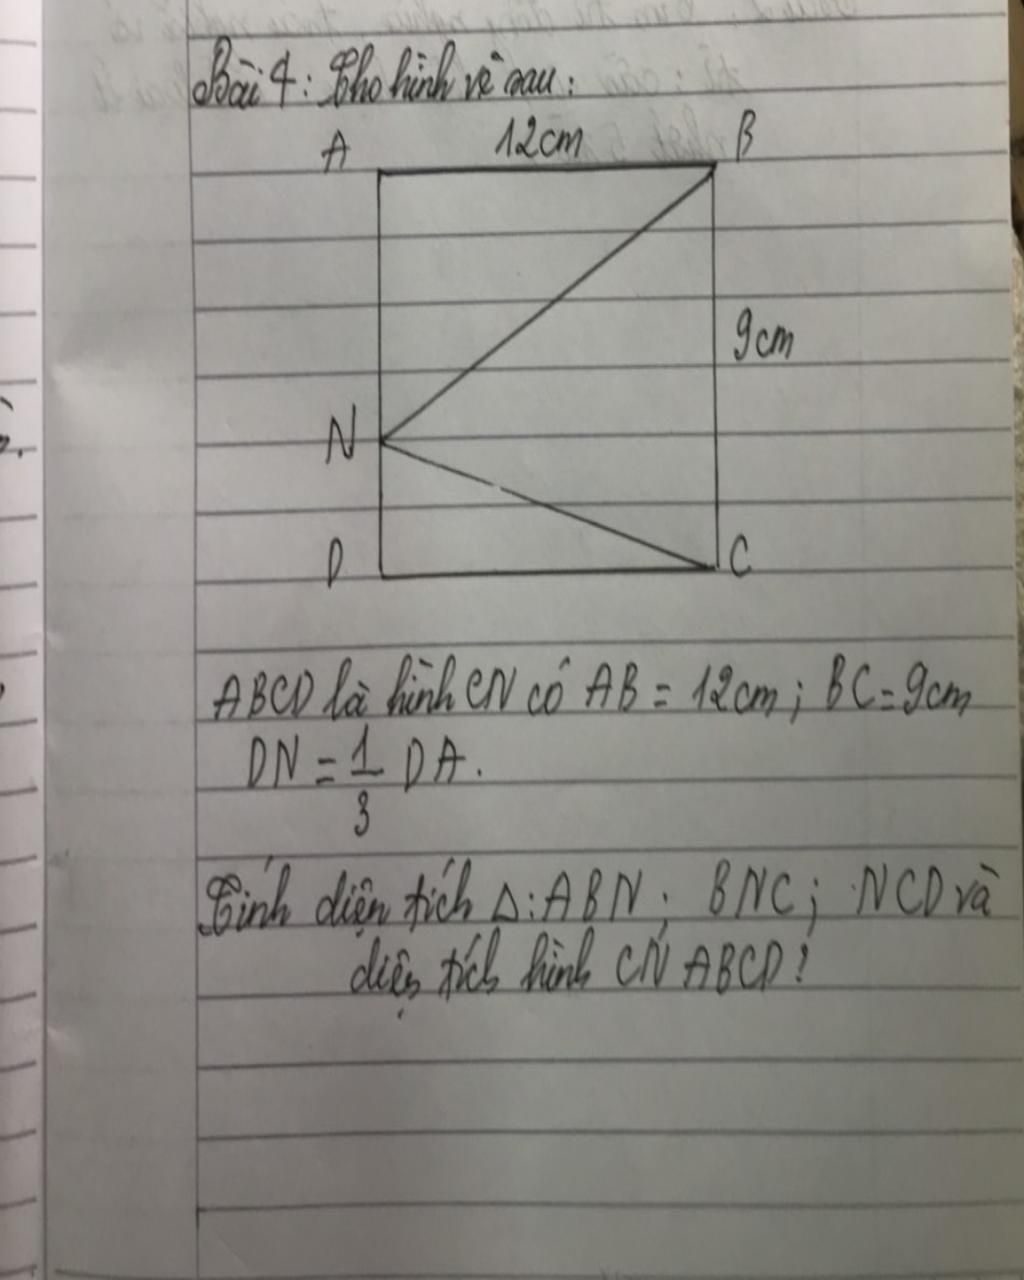 Bài 4: Cho hình vẽ sau:
A 12cm B
9cm
N
D C
ABCD là hình CN có AB = 12cm; BC = 9cm
DN = 1/3 DA.
Tính diện tích Δ: ABN; BNC; NCD và
diện tích hình CN ABCD!